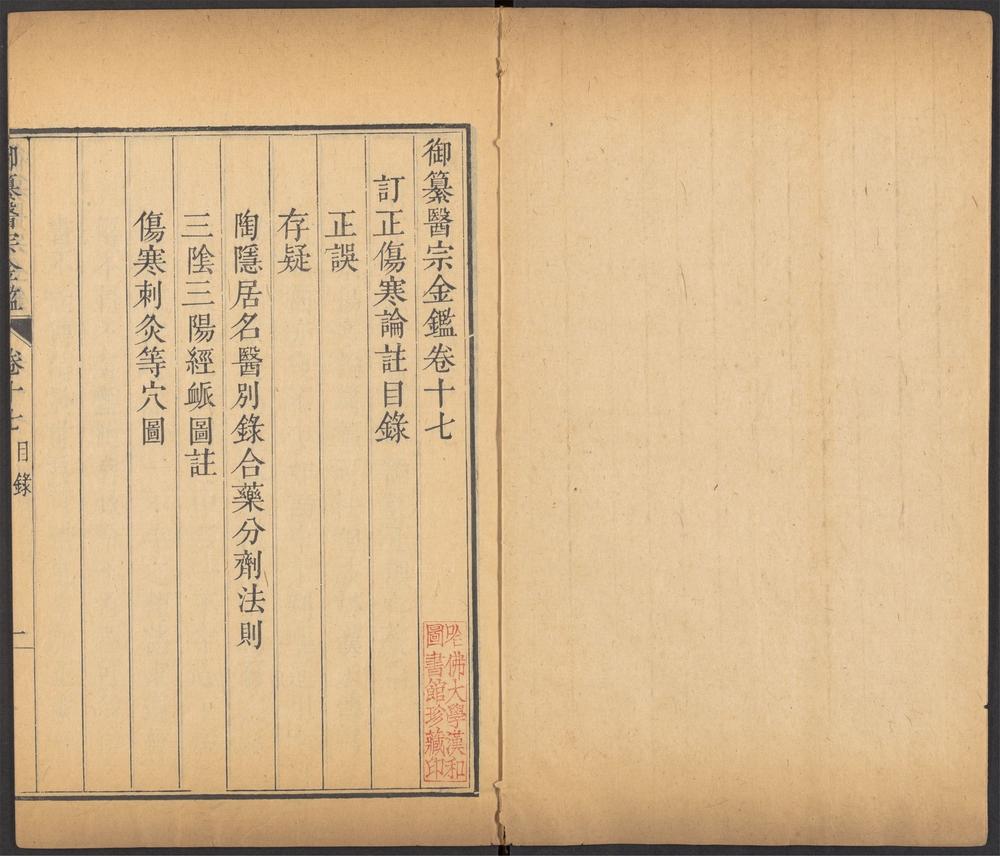 御纂醫宗金鑑卷十七
訂正傷寒論註目錄
正誤
存疑
陶隱居名醫別錄合藥分劑法則
三陰三陽經衇圖註
傷寒刺灸等穴圖
御纂醫宗金鑑 卷十七 目錄 一
哈佛大學漢和
圖書館珍藏印